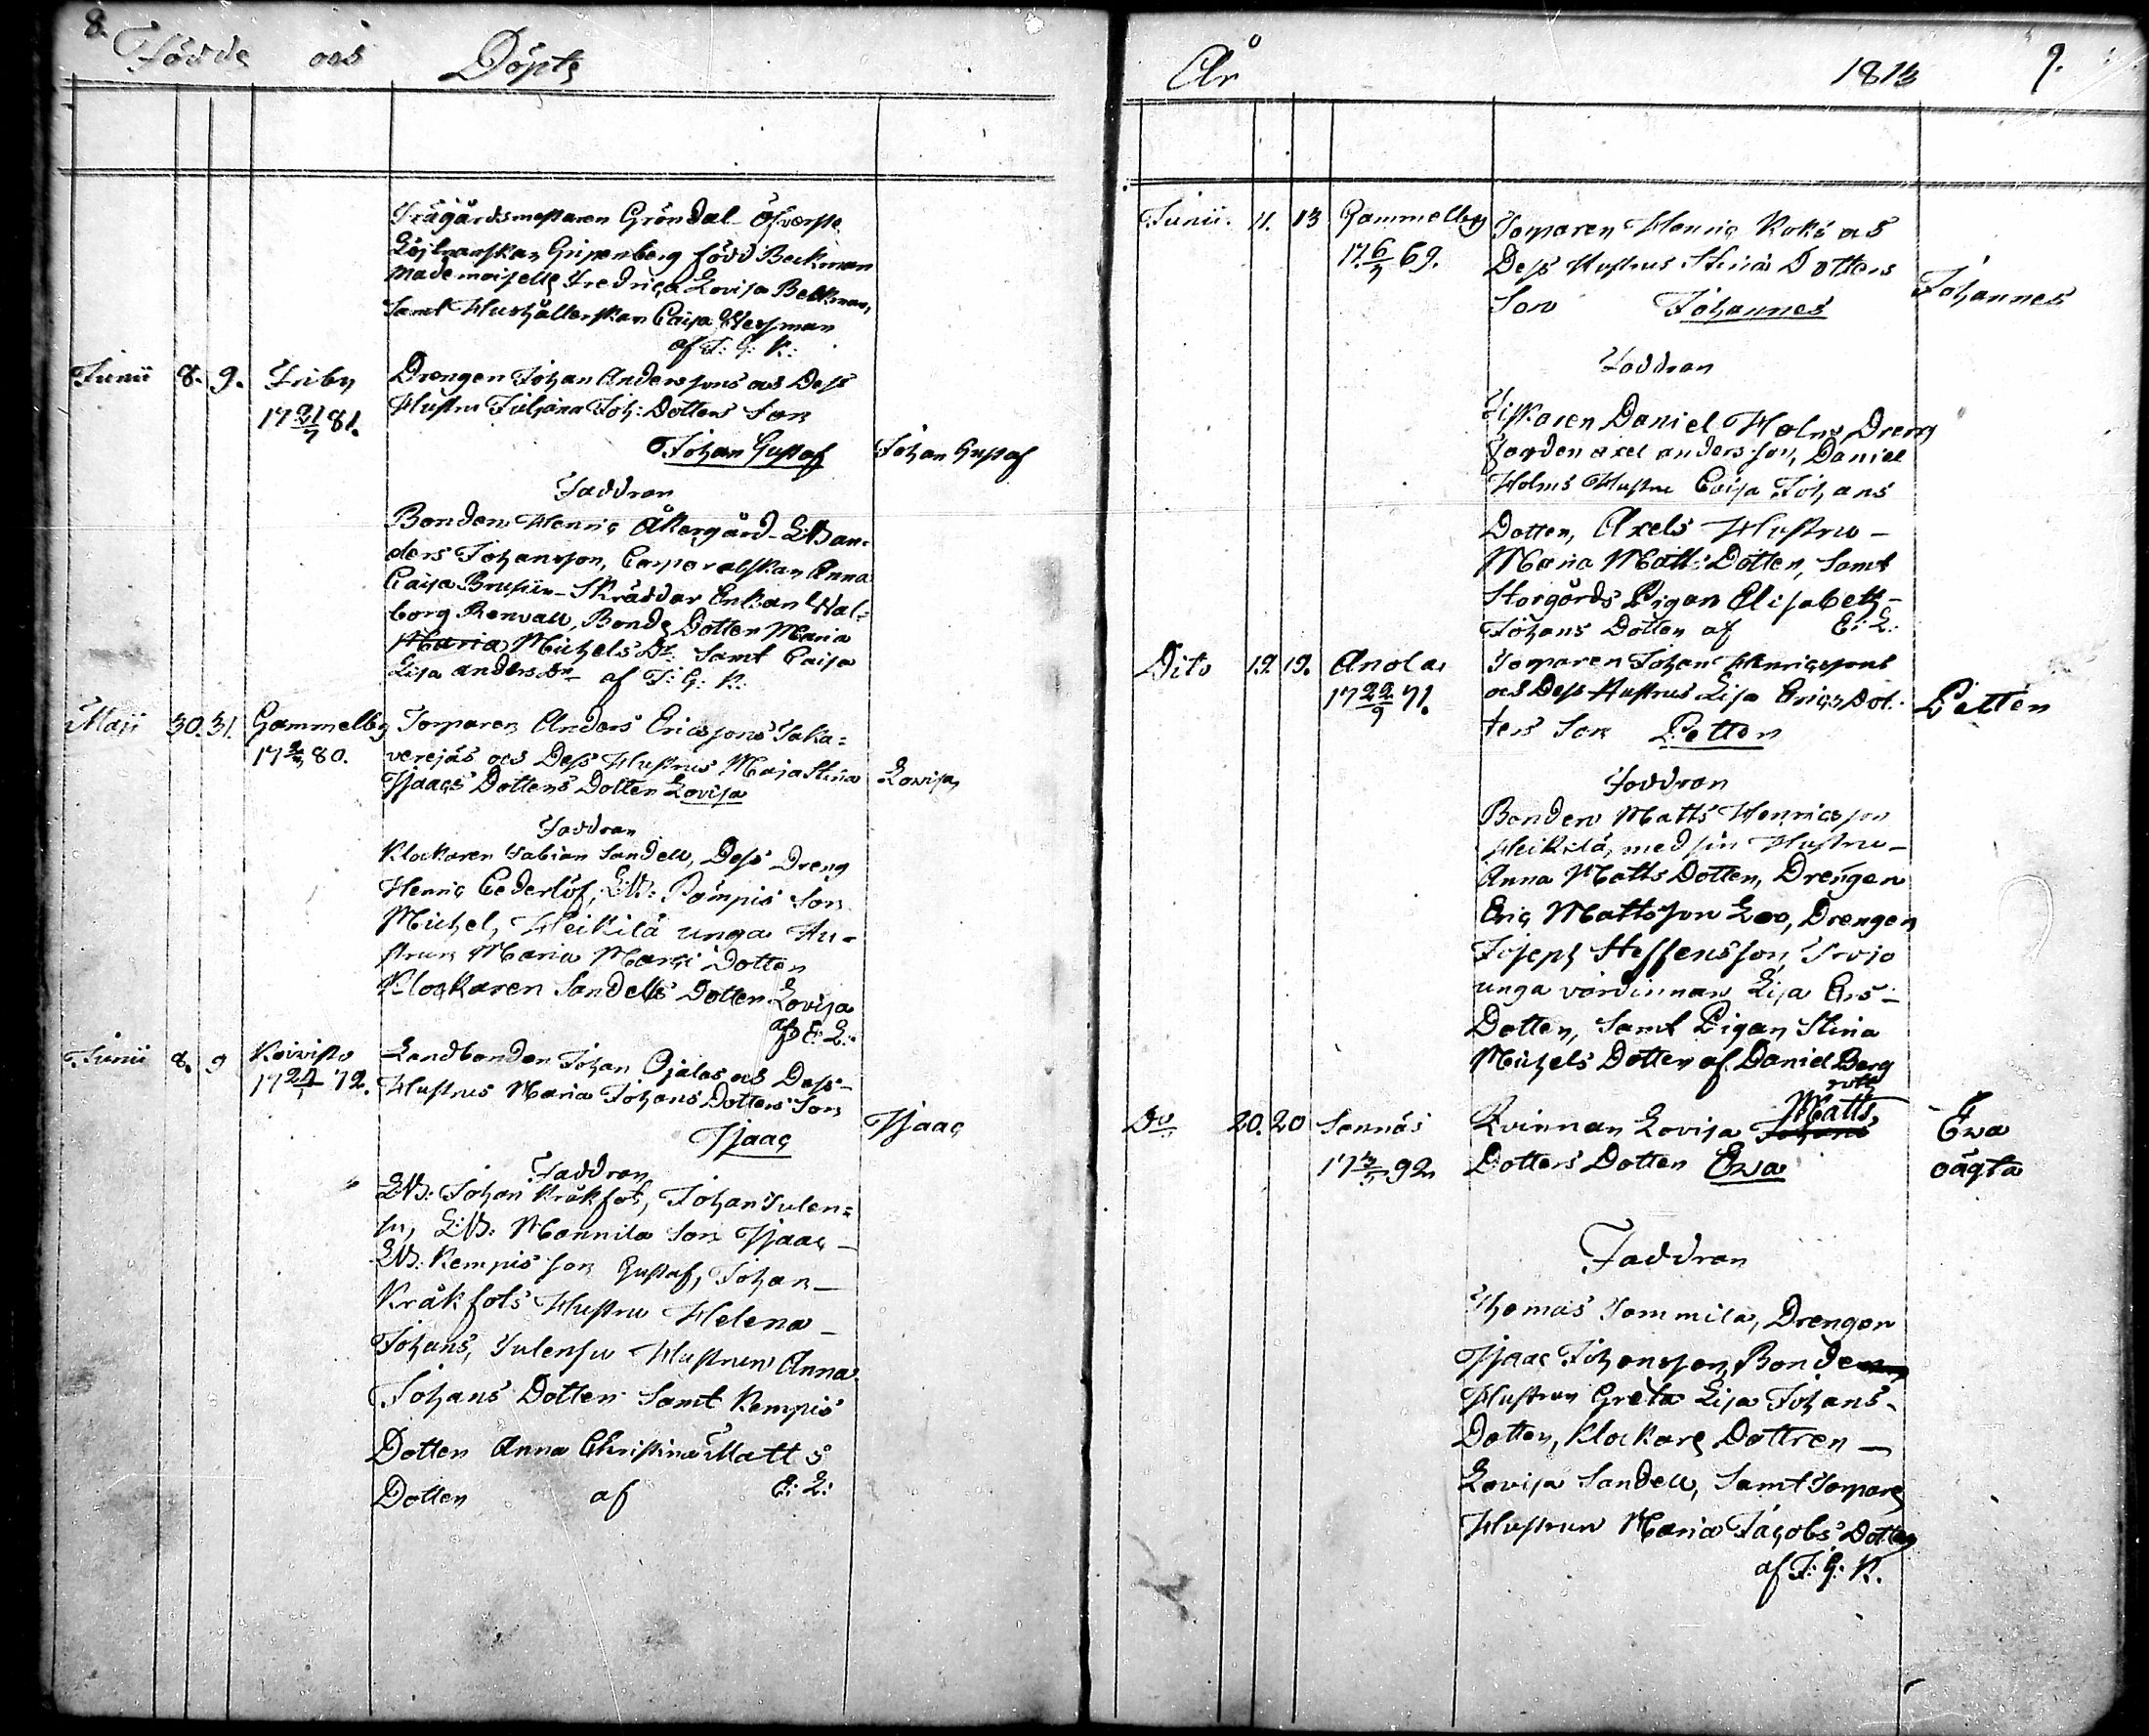 8.
Födde och Döpte
Trägårdsmestaren Gröndal Öfverste
Löjtnanskan Gripenberg född Beckman
Mademoiselle Fredrica Lovisa Beckman,
Samt Hushållerskan Caisa
af J: G: K:
Junii 8. 9. Friby Drengen Johan Anderssons och Dess
17 21/7 81. Hustru Juliana Joh: Dotters Son
Johan Gustaf Johan Gustaf
Faddran
Bonden Henric Åkergård L:B an=
ders Johansson, Corporalskan Anna
Caisa Brusiin Skräddar Enkan Wal=
borg Renvall, Bonde Dotten Maria
Maria Michels Dr. Samt Caisa
Lisa anders Dr af J: G: K:
Maji 30. 31. Gammelby Torparen Anders Ericssons Taka=
80. verejäs och Dess Hustrus Maja Stina Lovisa
Isaacs Dotters Dotter Lovisa
Faddran
Klockaren Fabian Sandell, Dess Dreng
Henric Cederlöf, L:B: Pömpis Son
Michel, Heikilä unga Hu=
strun Maria Dotter
Klockaren Sandells Dotter Lovisa
af E: L:
Junii 8. 9 Koivisto Landbonden Johan Ojalas och Dess
72. Hustrus Maria Johans Dotters Son
Isaac Isaac
Faddran
L:B: Johan Kråkfot, Johan Julen=
su, L:B: Mannila Son Isaac
L:B: Kempis Son Gustaf, Johan
Kråkfots Hustru Helena
Johans, Julensu Hustrun Anna
Johans Dotter Samt Kempis
Dotter Anna Christina Matts
Dotter af E: L:
År 1813 9.
Junii 11. 13 Gammelby Torparen Henric Kokö och
17 6/7 69. Dess Hustrus Stina Dotters
Son Johannes Johannes
Faddran
Fiskaren Daniel Holm, Dreng
axel andersson, Daniel
Holms Hustru Caisa Johans
Dotter, Axels Hustru
Maria Matts Dotter, Samt
Storgårds Pigan Elisabeth
Johans Dotter af E: L:
Dito 19. 19. Anola Torparen Johan Henricssons
17 22/9 71. och Dess Hustrus Lisa Erics Dot=
ters Son Petter Petter
Faddran
Bonden Matts Henricsson
Heikilä, med sin Hustru
Anna Matts Dotter, Drengen
Eric Mattsson Drengen
Joseph Steffensson,
unga värdinnan Lisa Ers
Dotter, Samt Pigan Stina
Michels Dotter af Daniel Berg
roth
Matts
Do 20. 20 Sonnäs Kvinnan Lovisa Johans Ewa
92 Dotters Dotter Ewa oägta
Faddran
Thomas Tommila, Drengen
Isaac Johansson, Bonde
Hustrun Greta Lisa Johans
Dotter, Klockare Dottren
Lovisa Sandell, Samt Torpare
Hustrun Maria Jacobs Dotter
af J: G: K.